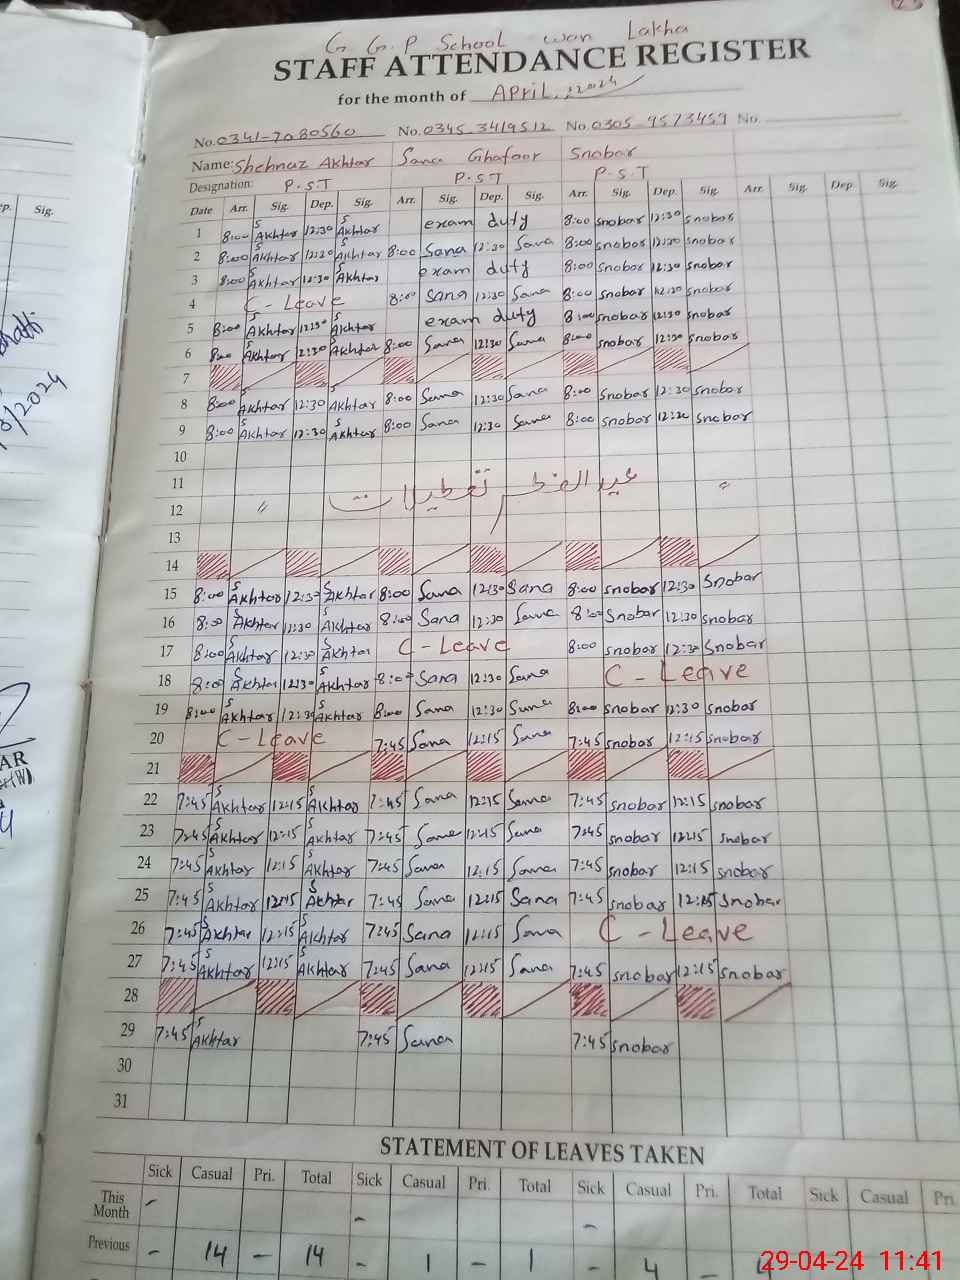 G. G. P School wan Lakha
STAFF ATTENDANCE REGISTER
for the month of APriL, 2024
No. 0341-7080560 No. 0345-3419512 No. 0305-9573459 No.
Name: Shehnaz Akhtar Sana Ghafoor Snobar
Designation: P.S.T P.S.T P.S.T
Date Arr. Sig. Dep. Sig. Arr. Sig. Dep. Sig. Arr. Sig. Dep. Sig. Arr. Sig. Dep Sig.
1 8:00 S Akhtar 12:30 S Akhtar exam duty 8:00 snobar 12:30 snobar
2 8:00 S Akhtar 12:30 S Akhtar 8:00 Sana 12:30 Sana 8:00 snobar 12:30 snobar
3 8:00 S Akhtar 12:30 S Akhtar exam duty 8:00 snobar 12:30 snobar
4 C - Leave 8:00 Sana 12:30 Sana 8:00 snobar 12:30 snobar
5 8:00 S Akhtar 12:30 S Akhtar exam duty 8:00 snobar 12:30 snobar
6 8:00 S Akhtar 12:30 S Akhtar 8:00 Sana 12:30 Sana 8:00 snobar 12:30 snobar
7
8 8:00 S Akhtar 12:30 S Akhtar 8:00 Sana 12:30 Sana 8:00 snobar 12:30 snobar
9 8:00 S Akhtar 12:30 S Akhtar 8:00 Sana 12:30 Sana 8:00 snobar 12:30 snobar
10
11 عید الفطر تعطیلات "
12 "
13
14
15 8:00 S Akhtar 12:30 S Akhtar 8:00 Sana 12:30 Sana 8:00 snobar 12:30 Snobar
16 8:00 S Akhtar 12:30 S Akhtar 8:00 Sana 12:30 Sana 8:00 Snobar 12:30 snobar
17 8:00 S Akhtar 12:30 S Akhtar C - Leave 8:00 snobar 12:30 Snobar
18 8:00 S Akhtar 12:30 S Akhtar 8:00 Sana 12:30 Sana C - Leave
19 8:00 S Akhtar 12:30 S Akhtar 8:00 Sana 12:30 Sana 8:00 snobar 12:30 snobar
20 C - Leave 7:45 Sana 12:15 Sana 7:45 snobar 12:15 snobar
21
22 7:45 S Akhtar 12:15 S Akhtar 7:45 Sana 12:15 Sana 7:45 snobar 12:15 snobar
23 7:45 S Akhtar 12:15 S Akhtar 7:45 Sana 12:15 Sana 7:45 snobar 12:15 snobar
24 7:45 S Akhtar 12:15 S Akhtar 7:45 Sana 12:15 Sana 7:45 snobar 12:15 snobar
25 7:45 S Akhtar 12:15 S Akhtar 7:45 Sana 12:15 Sana 7:45 snobar 12:15 Snobar
26 7:45 S Akhtar 12:15 S Akhtar 7:45 Sana 12:15 Sana C - Leave
27 7:45 S Akhtar 12:15 S Akhtar 7:45 Sana 12:15 Sana 7:45 snobar 12:15 snobar
28
29 7:45 S Akhtar 7:45 Sana 7:45 snobar
30
31
STATEMENT OF LEAVES TAKEN
Sick Casual Pri. Total Sick Casual Pri. Total Sick Casual Pri. Total Sick Casual Pri.
This Month - - -
Previous - 14 - 14 - 1 - 1 - 4 -
29-04-24 11:41